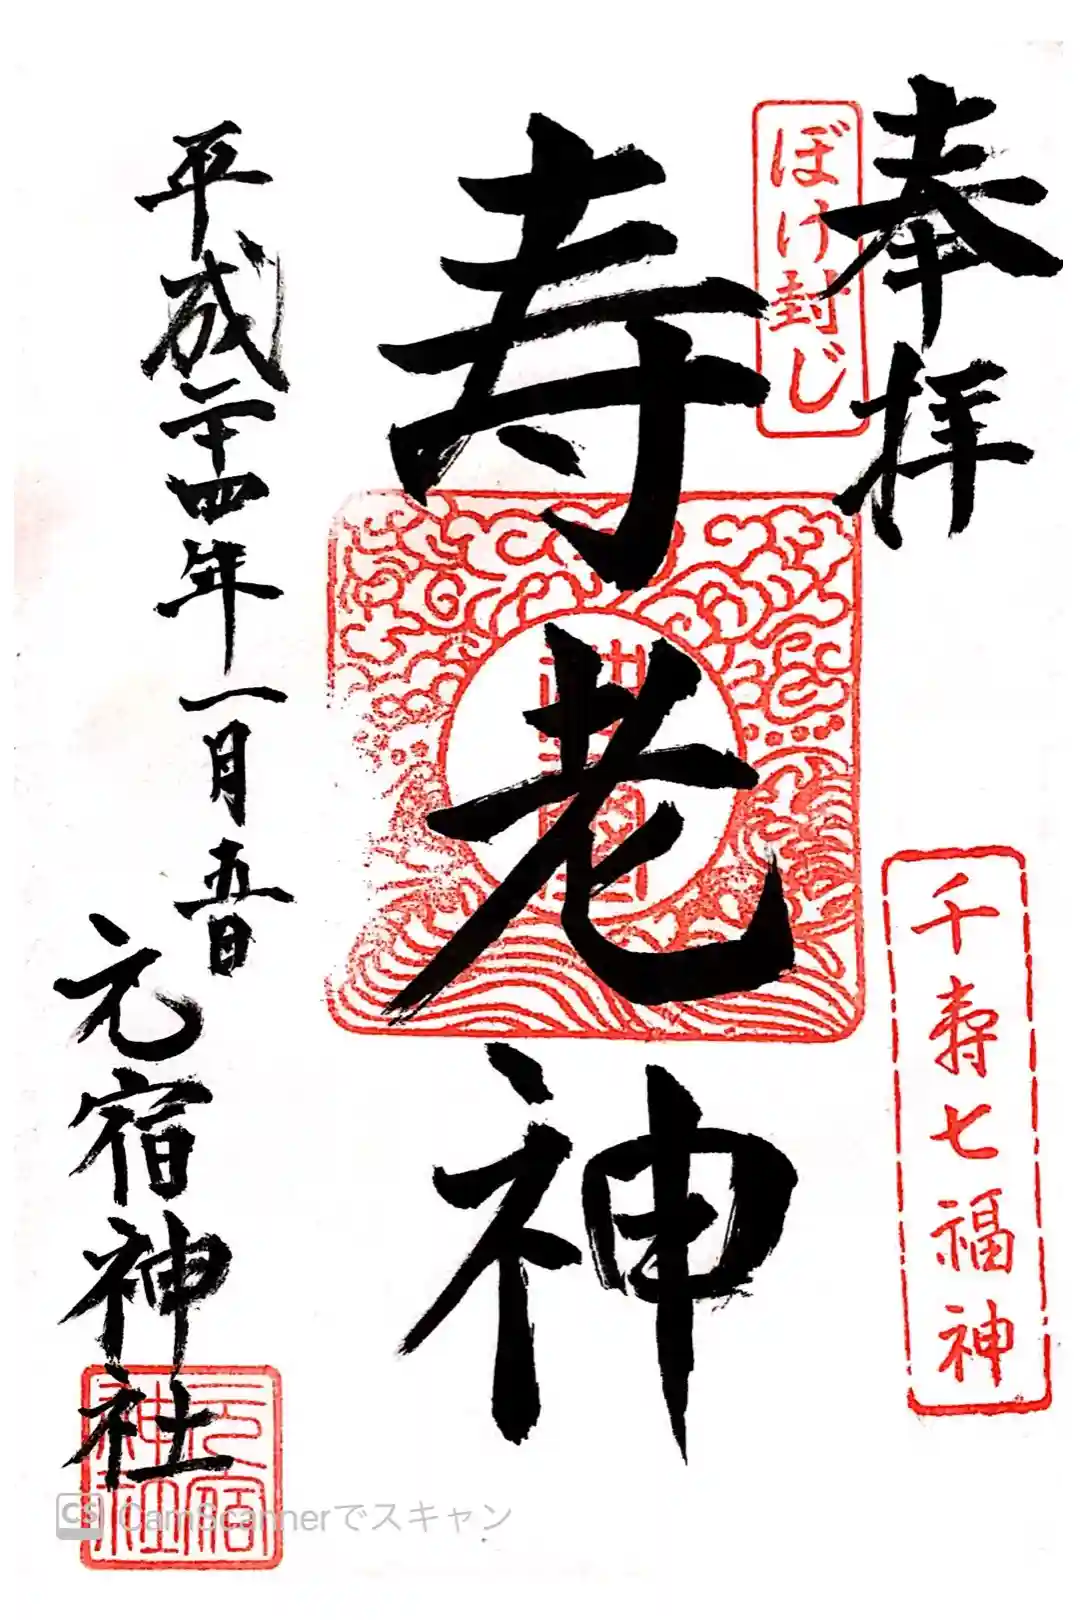 奉拝
ぼけ封じ
千寿七福神
寿老神
平成二十四年一月五日
元宿神社
元宿神社
CS CamScannerでスキャン